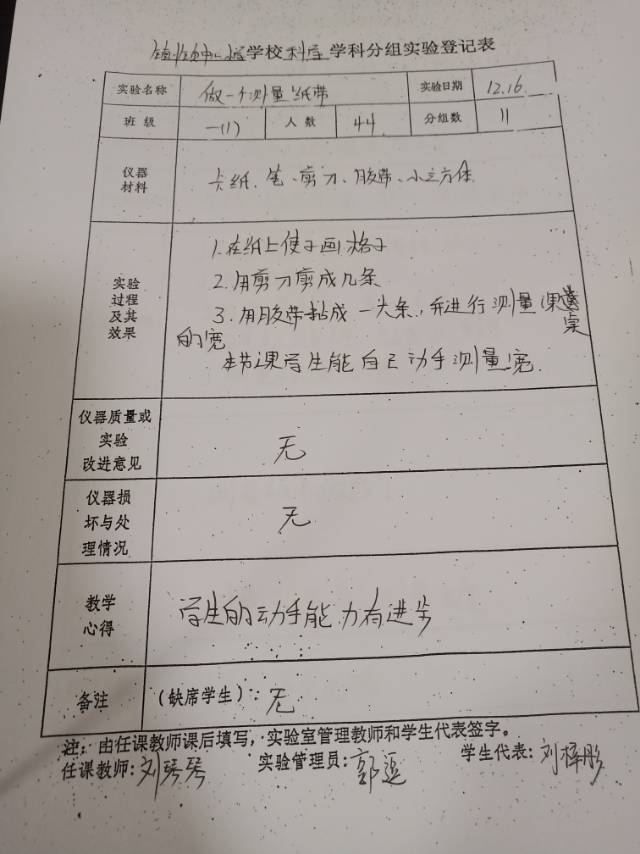 学校科学学科分组实验登记表
实验名称 做一个测量纸带 实验日期 12.16
班级 一(1) 人数 44 分组数 11
仪器材料 卡纸、笔、剪刀、胶带、小立方体
实验过程及其效果
1.在纸上使子画格子
2.用剪刀剪成几条
3.用胶带粘成一大条,并进行测量课桌
的宽
本节课学生能自己动手测量宽.
仪器质量或
实验
改进意见
无
仪器损
坏与处
理情况
无
教学
心得
学生的动手能力有进步
备注 (缺席学生):无
注:由任课教师课后填写,实验室管理教师和学生代表签字。
任课教师:刘琴琴 实验管理员:郭 学生代表:刘梓彤